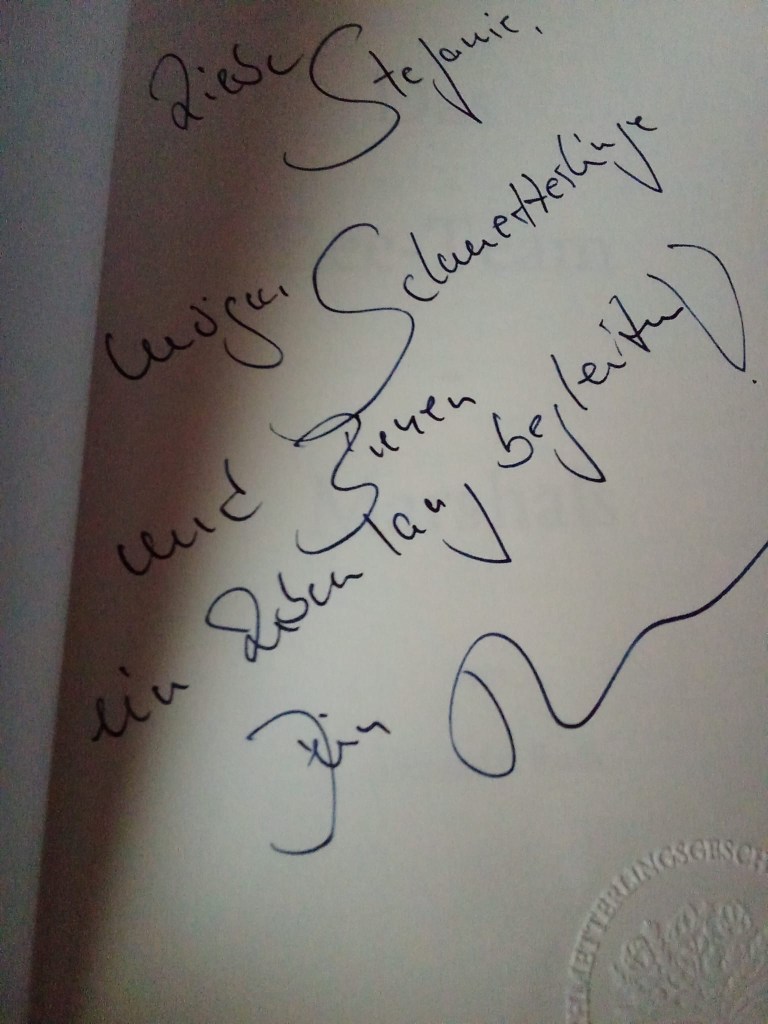 Liebe Stefanie,
mögen Schmetterlinge
und Bienen
ein Leben lang begleiten
Dein
ELMETTERLINGSGESCH